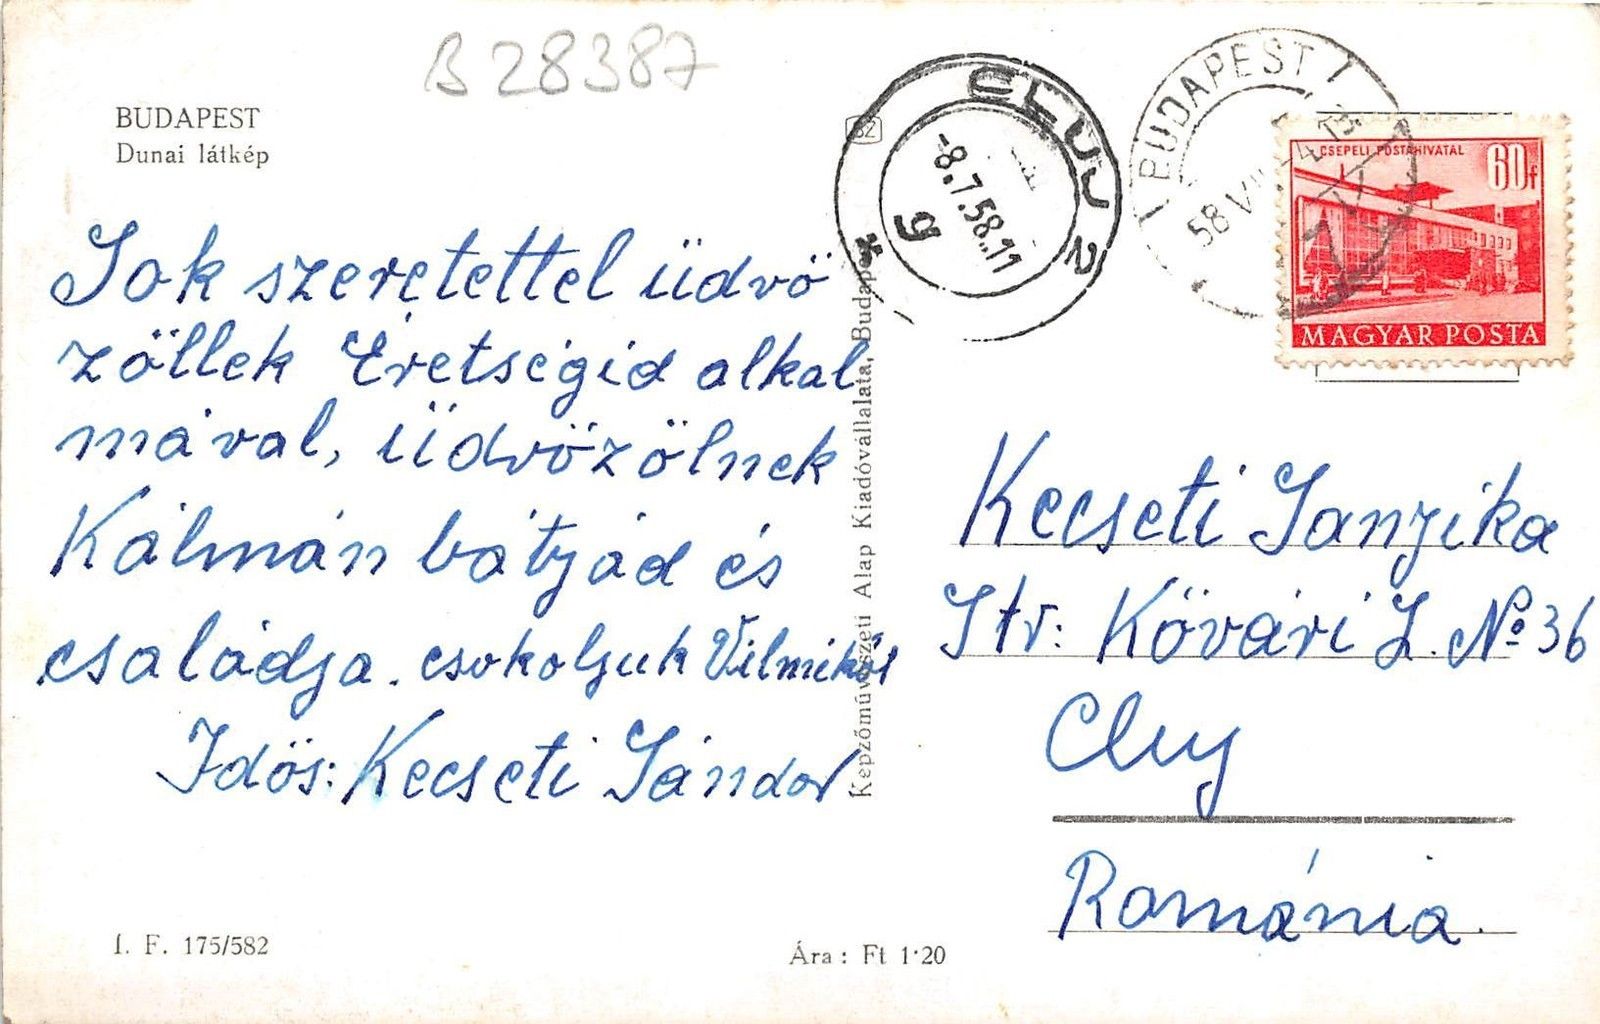 B 28387
BUDAPEST
Dunai látkép
Sok szeretettel üdvö
zöllek Éretségid alkal
mával, üdvözölnek
Kálmán bátyád és
családja. csokoljuk Vilmikót
Idös: Kecseti Sándor
I. F. 175/582
Ára: Ft 1·20
Képzőművészeti Alap Kiadóvállalata, Budapest
32
CLUJ 2
-8.7.58.11
g
BUDAPEST
58 VII
CSEPELI POSTAHIVATAL
60f
MAGYAR POSTA
Kecseti Sanyika
Str: Kövári L. No 36
Cluj
Románia.